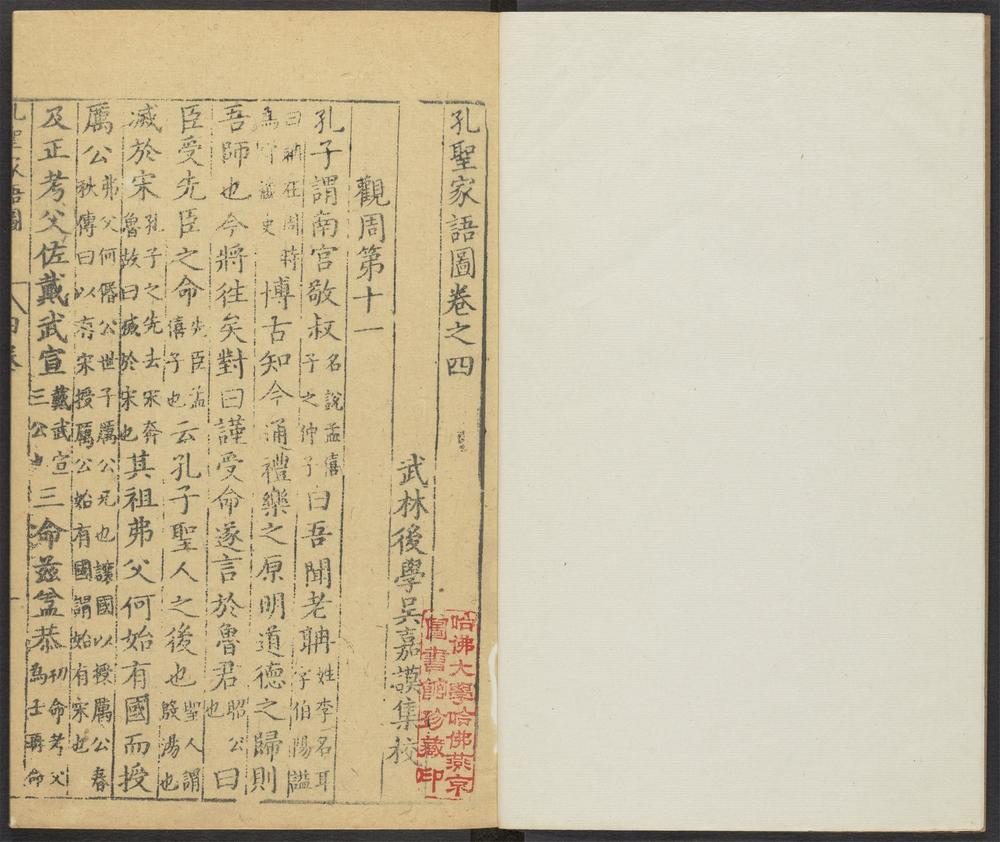 孔聖家語圖卷之四
武林後學吳嘉謨集校
哈佛大學哈佛燕京
圖書館珍藏印
觀周第十一
孔子謂南宮敬叔名說孟僖子之仲子曰吾聞老聃姓李名耳字伯陽謚
曰聃在周時為守藏史博古知今通禮樂之原明道德之歸則
吾師也今將徃矣對曰謹受命遂言於魯君昭公也曰
臣受先臣之命先臣孟僖子也云孔子聖人之後也聖人謂殷湯也
滅於宋孔子之先去宋奔魯故曰滅於宋也其祖弗父何始有國而授
厲公弗父何僖公世子厲公兄也讓國以授厲公春秋傳曰以有宋授厲公始有國謂始有宋也
及正考父佐戴武宣戴武宣三公也三命茲益恭初命考父為士再命
孔聖家語圖
四卷